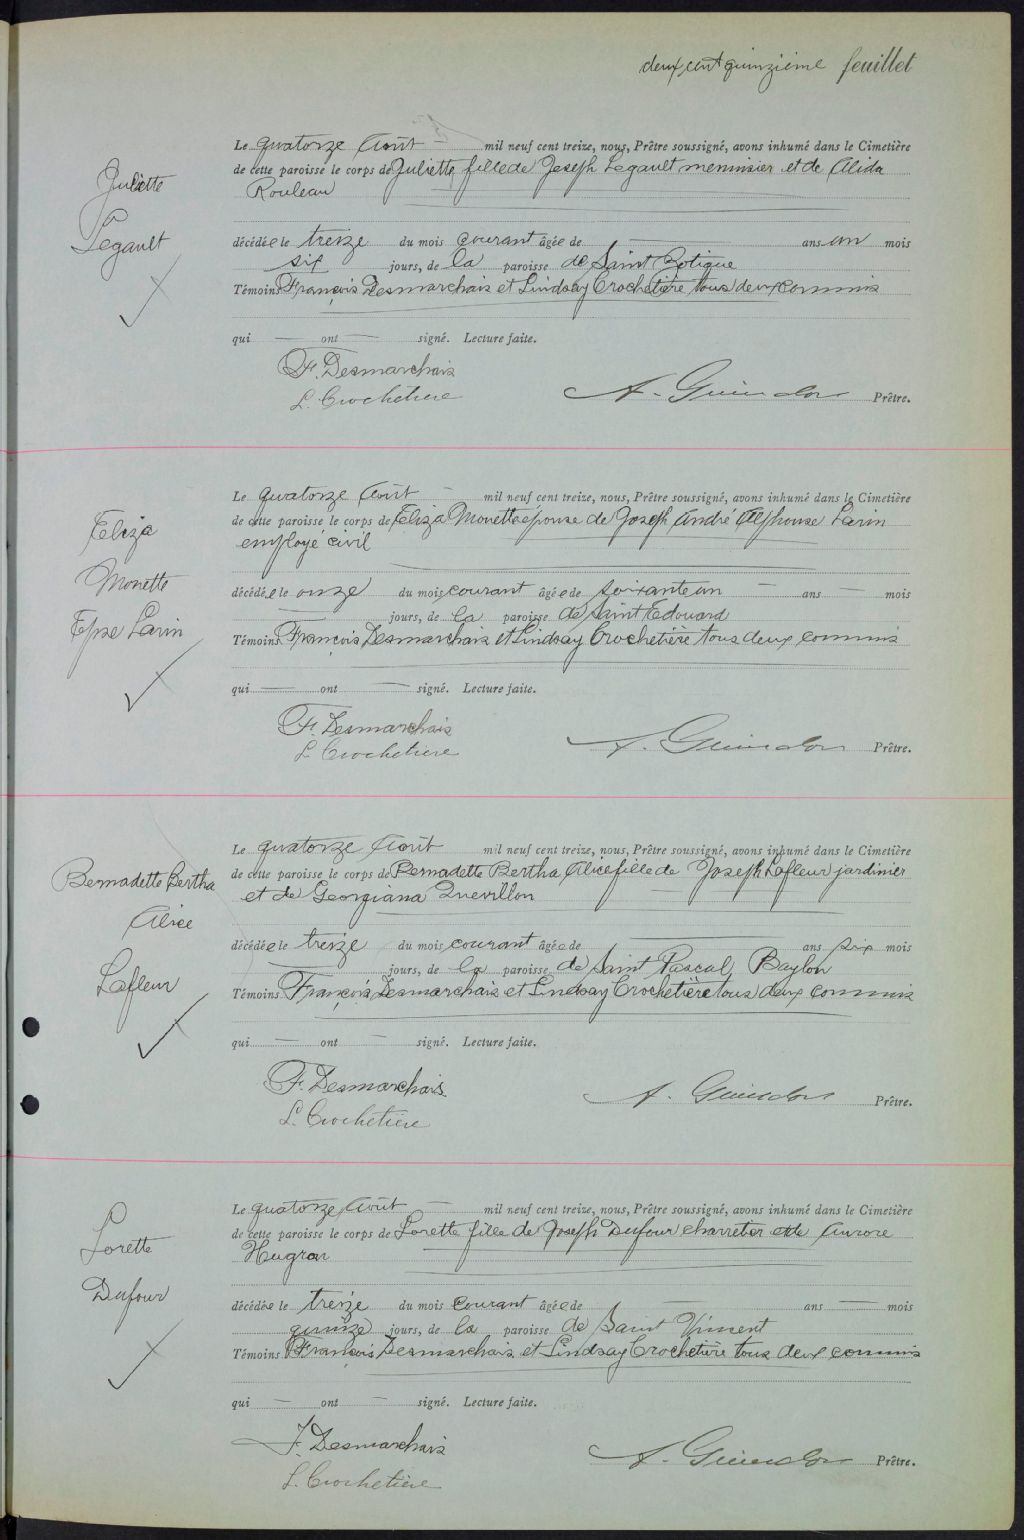 deux cent quinzième feuillet
Juliette
Legault
Le quatorze Août — mil neuf cent treize, nous, Prêtre soussigné, avons inhumé dans le Cimetière
de cette paroisse le corps de Juliette fille de Joseph Legault menuisier et de Alida
Rouleau
décédée le treize du mois courant âgée de — ans un mois
six jours, de la paroisse de Saint Zotique
Témoins François Desmarchais et Lindsay Crochetière tous deux commis
qui — ont — signé. Lecture faite.
F. Desmarchais
L. Crochetière
A. Guindon Prêtre.
Eliza
Monette
Epse Larin
Le quatorze Août — mil neuf cent treize, nous, Prêtre soussigné, avons inhumé dans le Cimetière
de cette paroisse le corps de Eliza Monette épouse de Joseph André Alphonse Larin
employé civil
décédée le onze du mois courant âgée de soixante un — ans — mois
— jours, de la paroisse de Saint Edouard
Témoins François Desmarchais et Lindsay Crochetière tous deux commis
qui — ont — signé. Lecture faite.
F. Desmarchais
L. Crochetière
A. Guindon Prêtre.
Bernadette Bertha
Alice
Lafleur
Le quatorze Août mil neuf cent treize, nous, Prêtre soussigné, avons inhumé dans le Cimetière
de cette paroisse le corps de Bernadette Bertha Alice fille de Joseph Lafleur jardinier
et de Georgiana Quevillon
décédée le treize du mois courant âgée de — ans six mois
— jours, de la paroisse de Saint Pascal Baylon
Témoins François Desmarchais et Lindsay Crochetière tous deux commis
qui — ont — signé. Lecture faite.
F. Desmarchais
L. Crochetière
A. Guindon Prêtre.
Lorette
Dufour
Le quatorze Août — mil neuf cent treize, nous, Prêtre soussigné, avons inhumé dans le Cimetière
de cette paroisse le corps de Lorette fille de Joseph Dufour charretier et de Aurore
décédée le treize du mois courant âgée de — ans — mois
quinze jours, de la paroisse de Saint Vincent
Témoins François Desmarchais et Lindsay Crochetière tous deux commis
qui — ont — signé. Lecture faite.
F. Desmarchais
L. Crochetière
A. Guindon Prêtre.